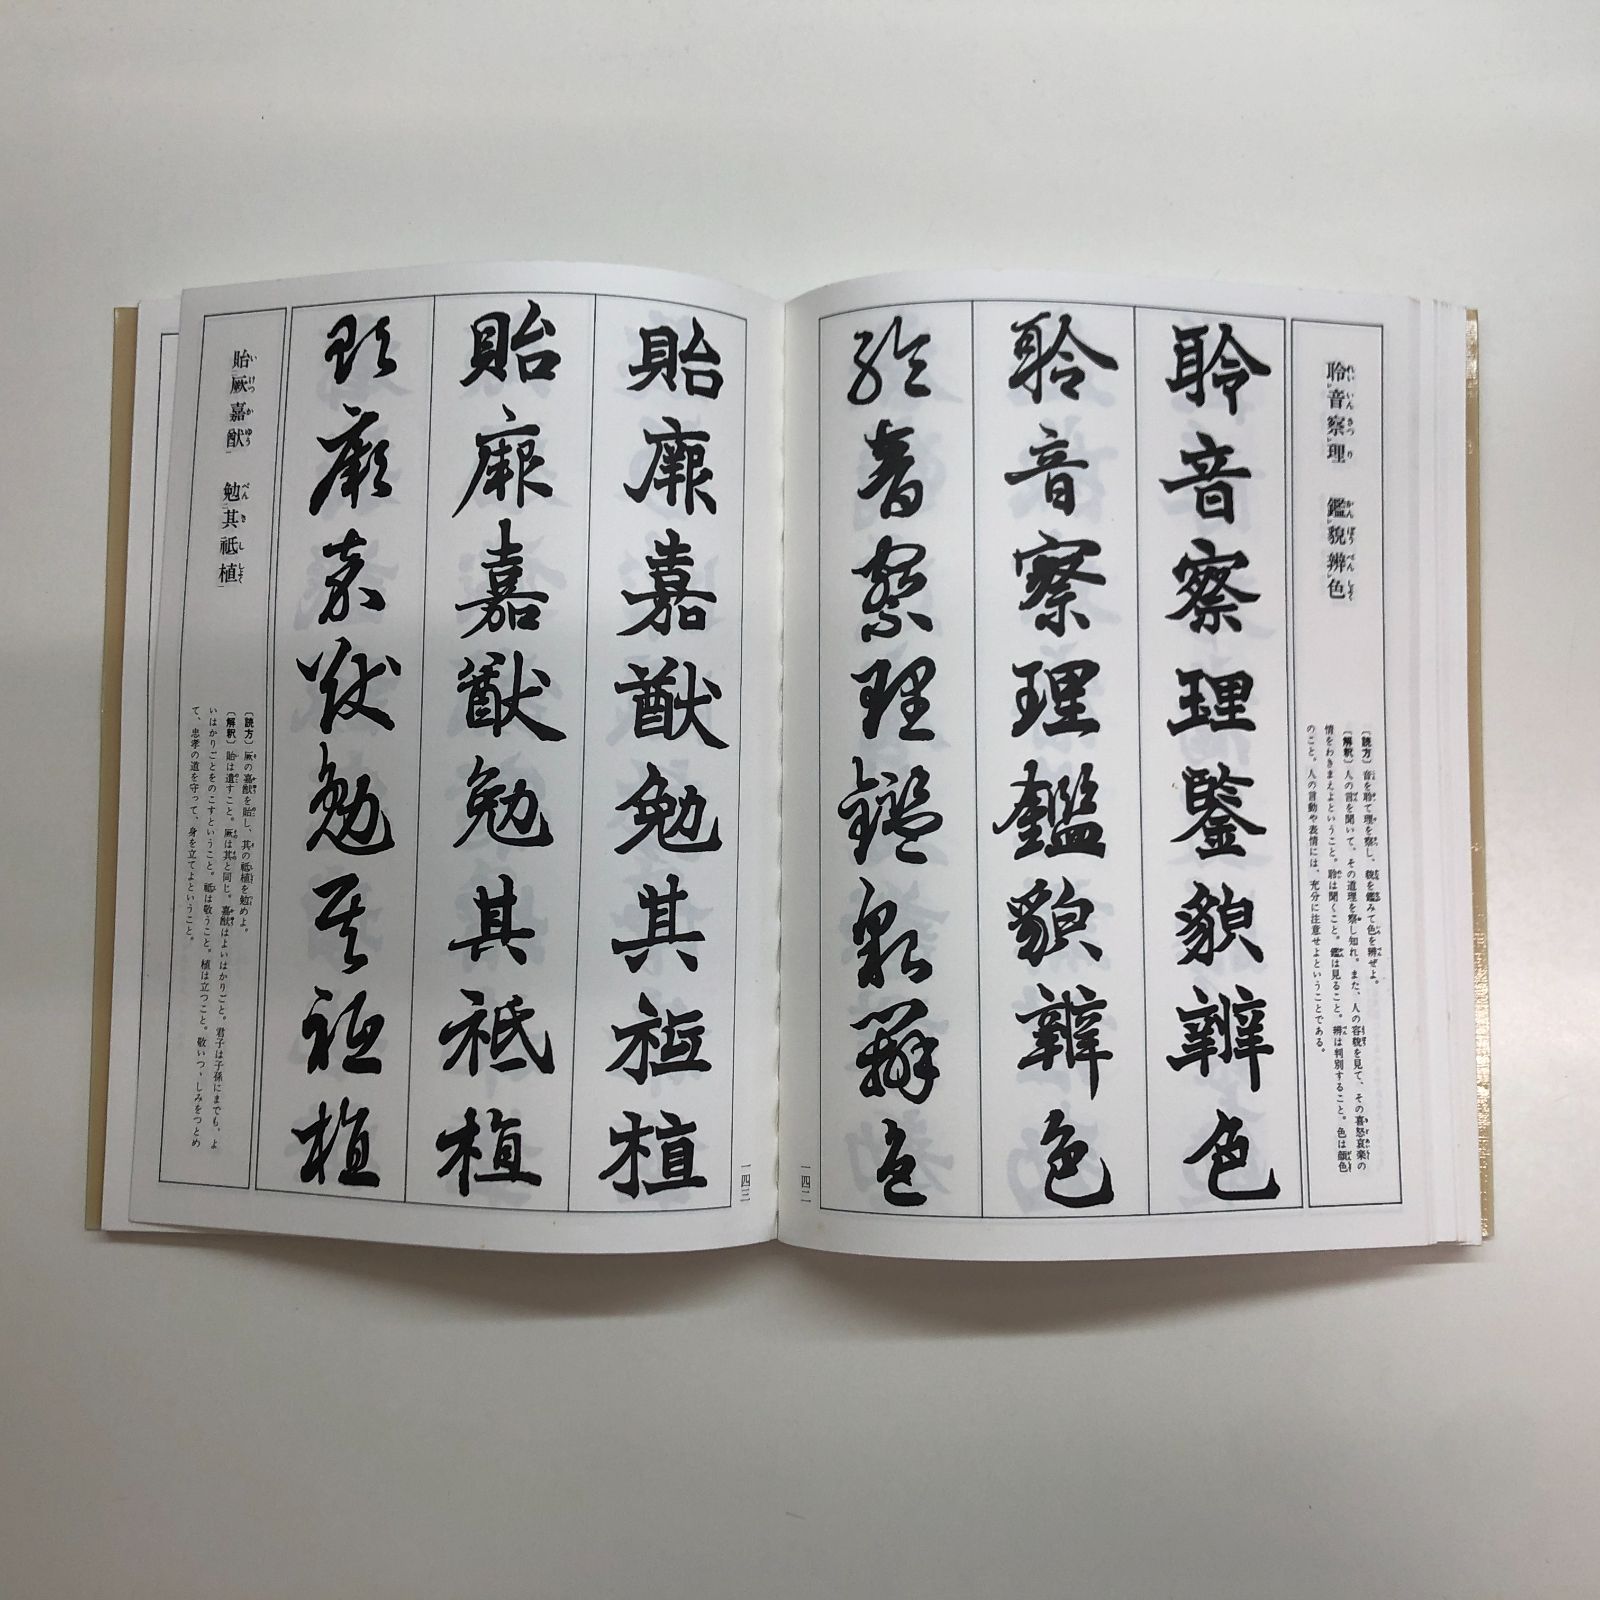 聆音察理　鑑貌辨色
〔読方〕音を聆て理を察し、貌を鑑みて色を辨ぜよ。
〔解釈〕人の言を聞いて、その道理を察し知れ。また、人の容貌を見て、その喜怒哀楽の
情をわきまえよということ。聆は聞くこと。鑑は見ること。辨は判別すること。色は顔色
のこと。人の言動や表情には、充分に注意せよということである。
聆音察理鑒貌辨色
聆音察理鑑貌辨色
聆音察理鑑貌辨色
一四二
貽厥嘉猷勉其祗植
貽厥嘉猷勉其祗植
貽厥嘉猷勉其祗植
一四三
貽厥嘉猷　勉其祗植
〔読方〕厥の嘉猷を貽し、其の祗植を勉めよ。
〔解釈〕貽は遺すこと。厥は其と同じ。嘉猷はよいはかりごと。君子は子孫にまでも、よ
いはかりごとをのこすということ。祗は敬うこと。植は立つこと。敬いつゝしみをつとめ
て、忠孝の道を守って、身を立てよということ。